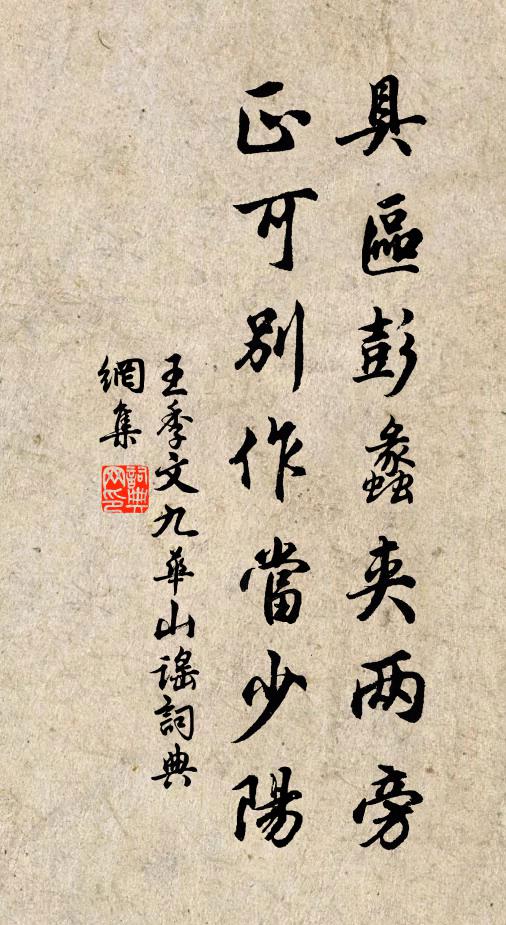 具區彭蠡夾两旁
正可別作當少陽
王季文九華山謠詞典
網集
詞典網印